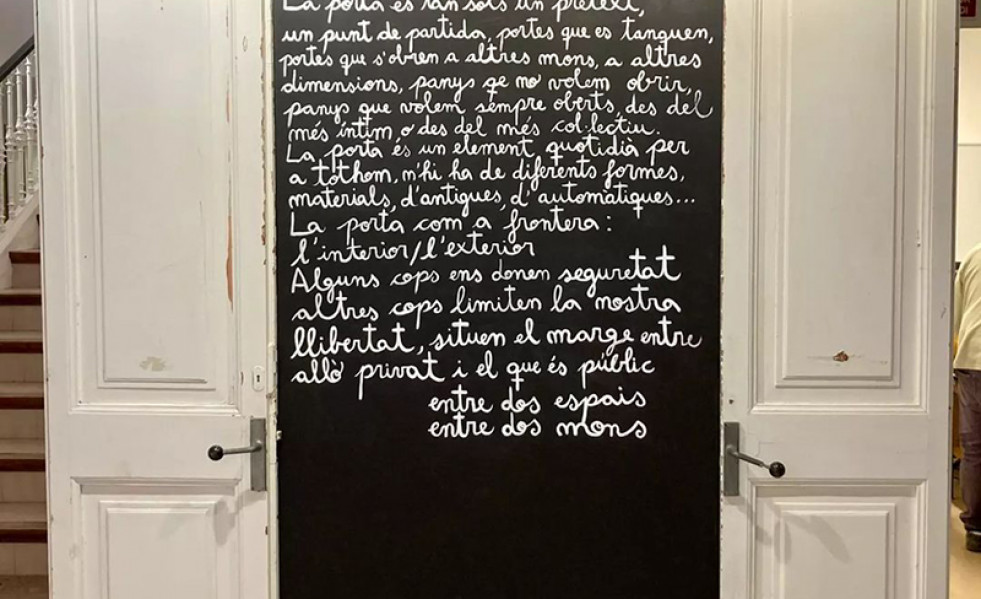 La porta és tan sols un pretext,
un punt de partida, portes que es tanquen,
portes que s'obren a altres mons, a altres
dimensions, panys qe no volem obrir,
panys que volem sempre oberts, des del
més íntim o des del més col·lectiu.
La porta és un element quotidià per
a tothom, n'hi ha de diferents formes,
materials, d'antigues, d'automàtiques...
La porta com a frontera:
l'interior/l'exterior
Alguns cops ens donen seguretat
altres cops limiten la nostra
llibertat, situen el marge entre
allò privat i el que és públic
entre dos espais
entre dos mons